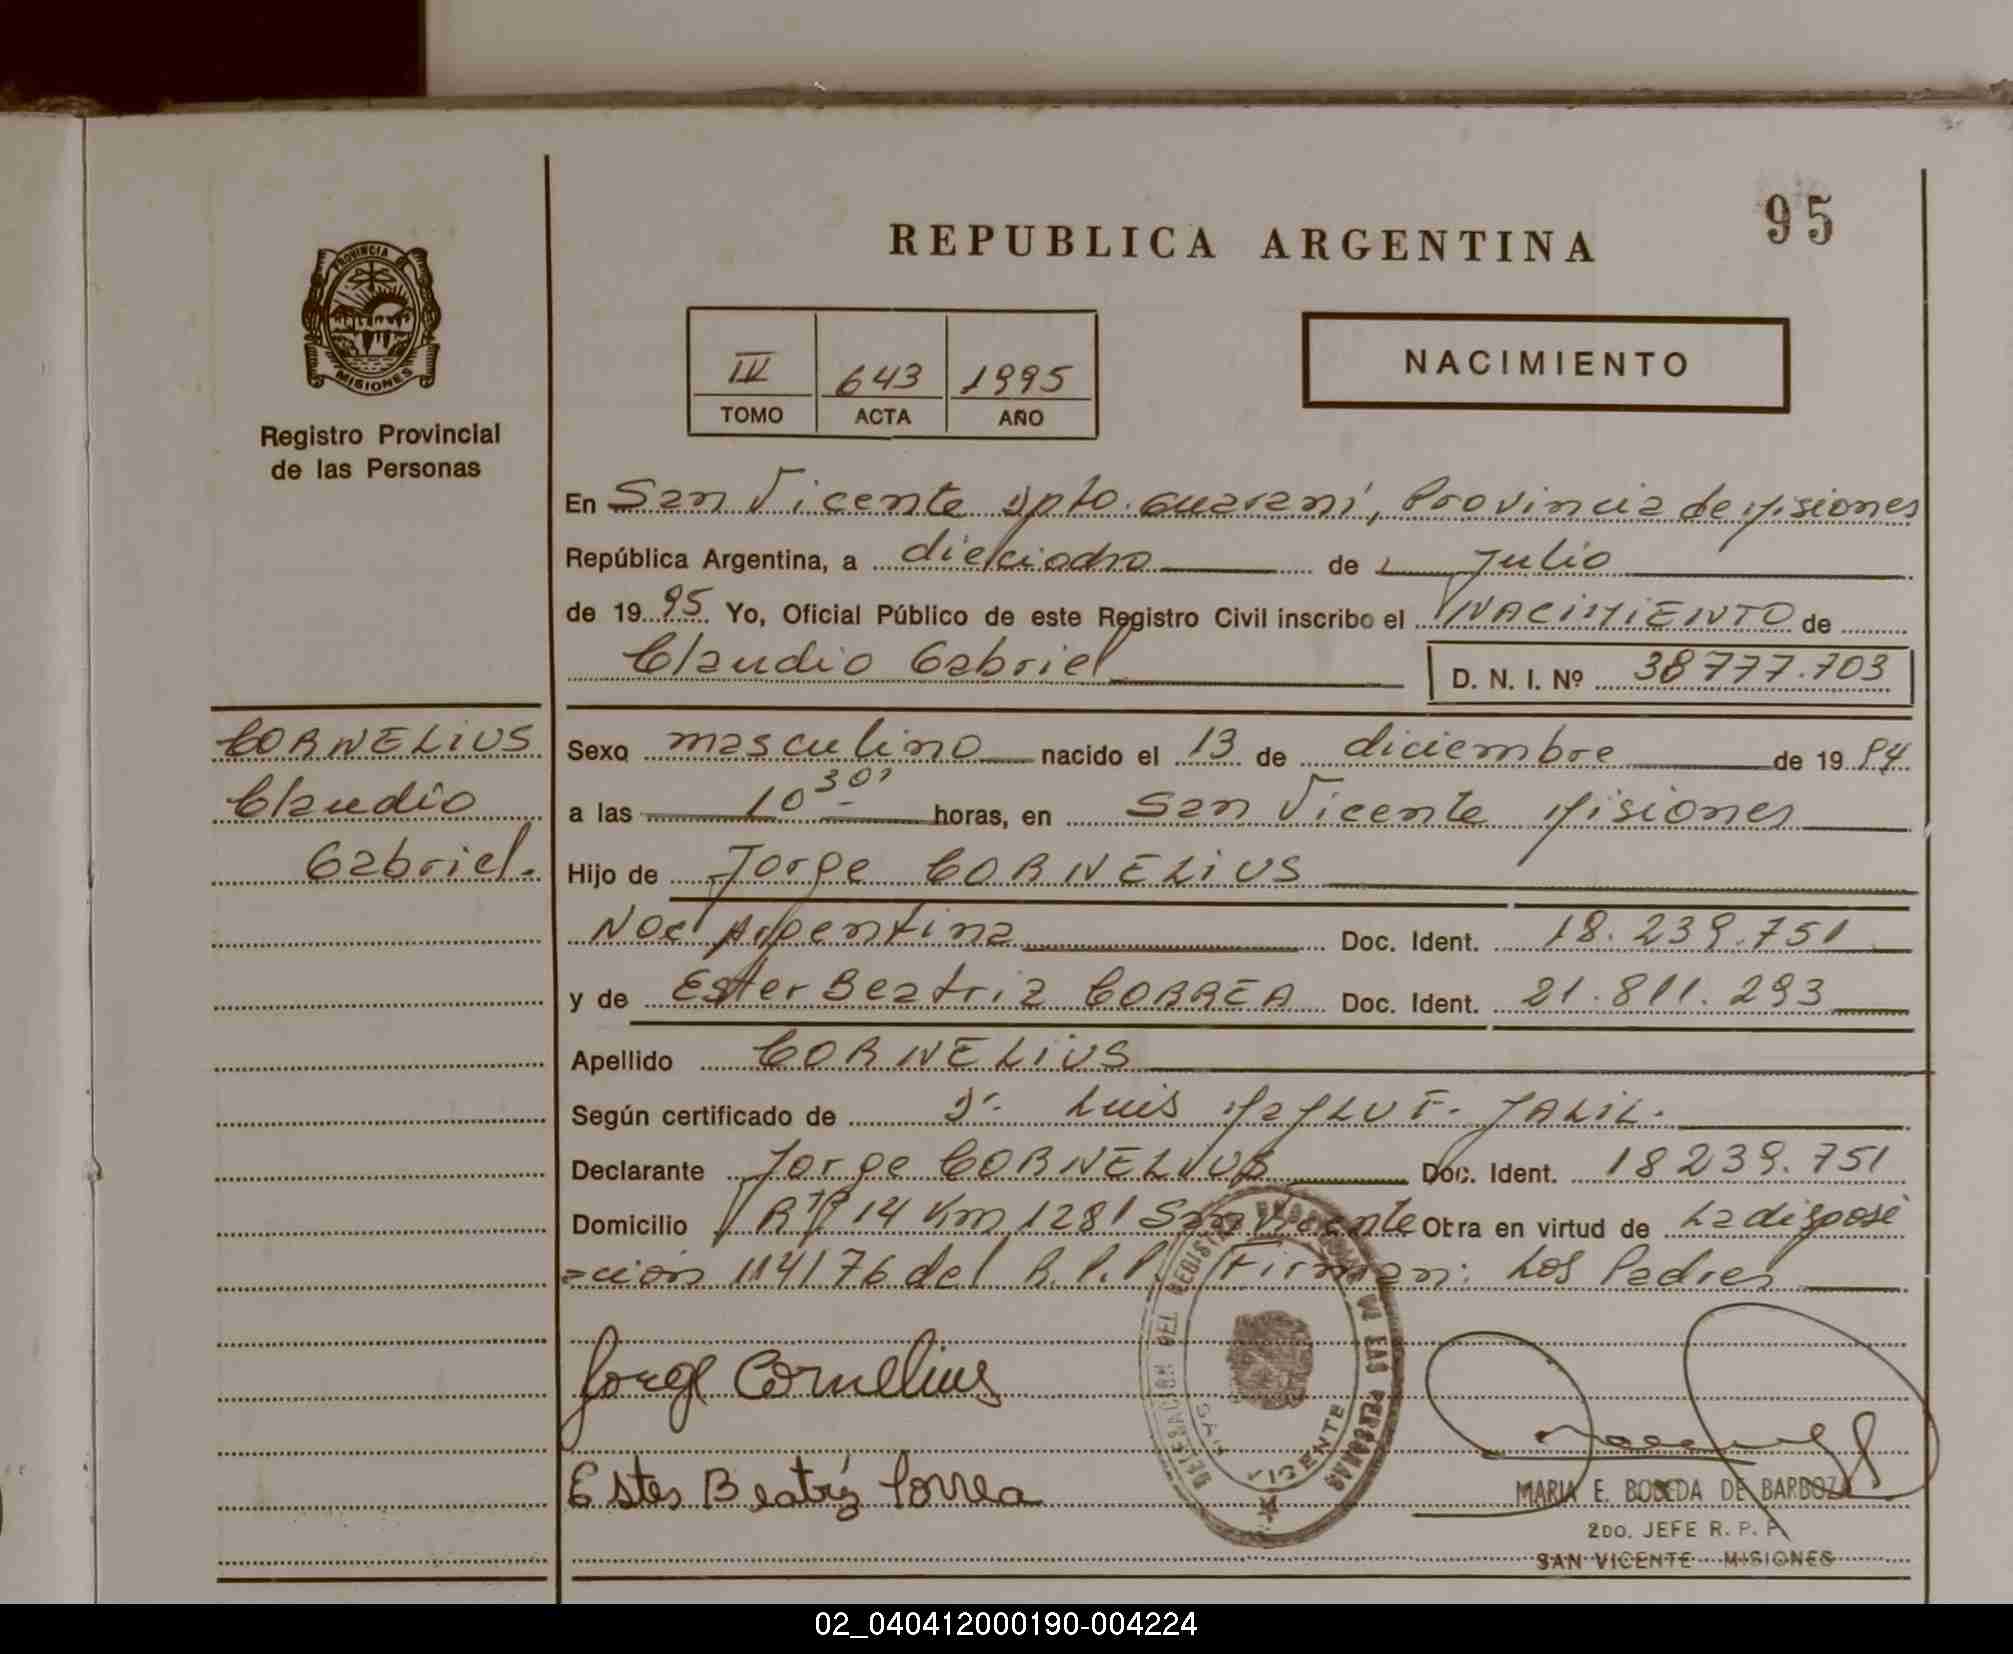 95
REPUBLICA ARGENTINA
PROVINCIA DE
MISIONES
Registro Provincial
de las Personas
IV 643 1995
TOMO ACTA AÑO
NACIMIENTO
En San Vicente Dpto. Guaraní, Provincia de Misiones
República Argentina, a dieciocho de Julio
de 1995 Yo, Oficial Público de este Registro Civil inscribo el NACIMIENTO de
Claudio Gabriel D. N. I. Nº 38777.703
CORNELIUS
Claudio
Gabriel.
Sexo masculino nacido el 13 de diciembre de 1994
a las 10 30' horas, en San Vicente Misiones
Hijo de Jorge CORNELIUS
Nac Argentina Doc. Ident. 18.239.751
y de Ester Beatriz CORREA Doc. Ident. 21.811.293
Apellido CORNELIUS
Según certificado de Dr. Luis JALIL.
Declarante Jorge CORNELIUS Doc. Ident. 18239.751
Domicilio 14 Km 1281 San Vicente Otra en virtud de La disposi
ción 114/76 del R.P.P. Firman: Los Padres
Jorge Cornelius
Ester Beatriz Correa
DELEGACION DEL REGISTRO PROVINCIAL DE LAS PERSONAS
SAN VICENTE
MARIA E. BOBEDA DE BARBOZA
2DO. JEFE R. P. P.
SAN VICENTE MISIONES
02_040412000190-004224